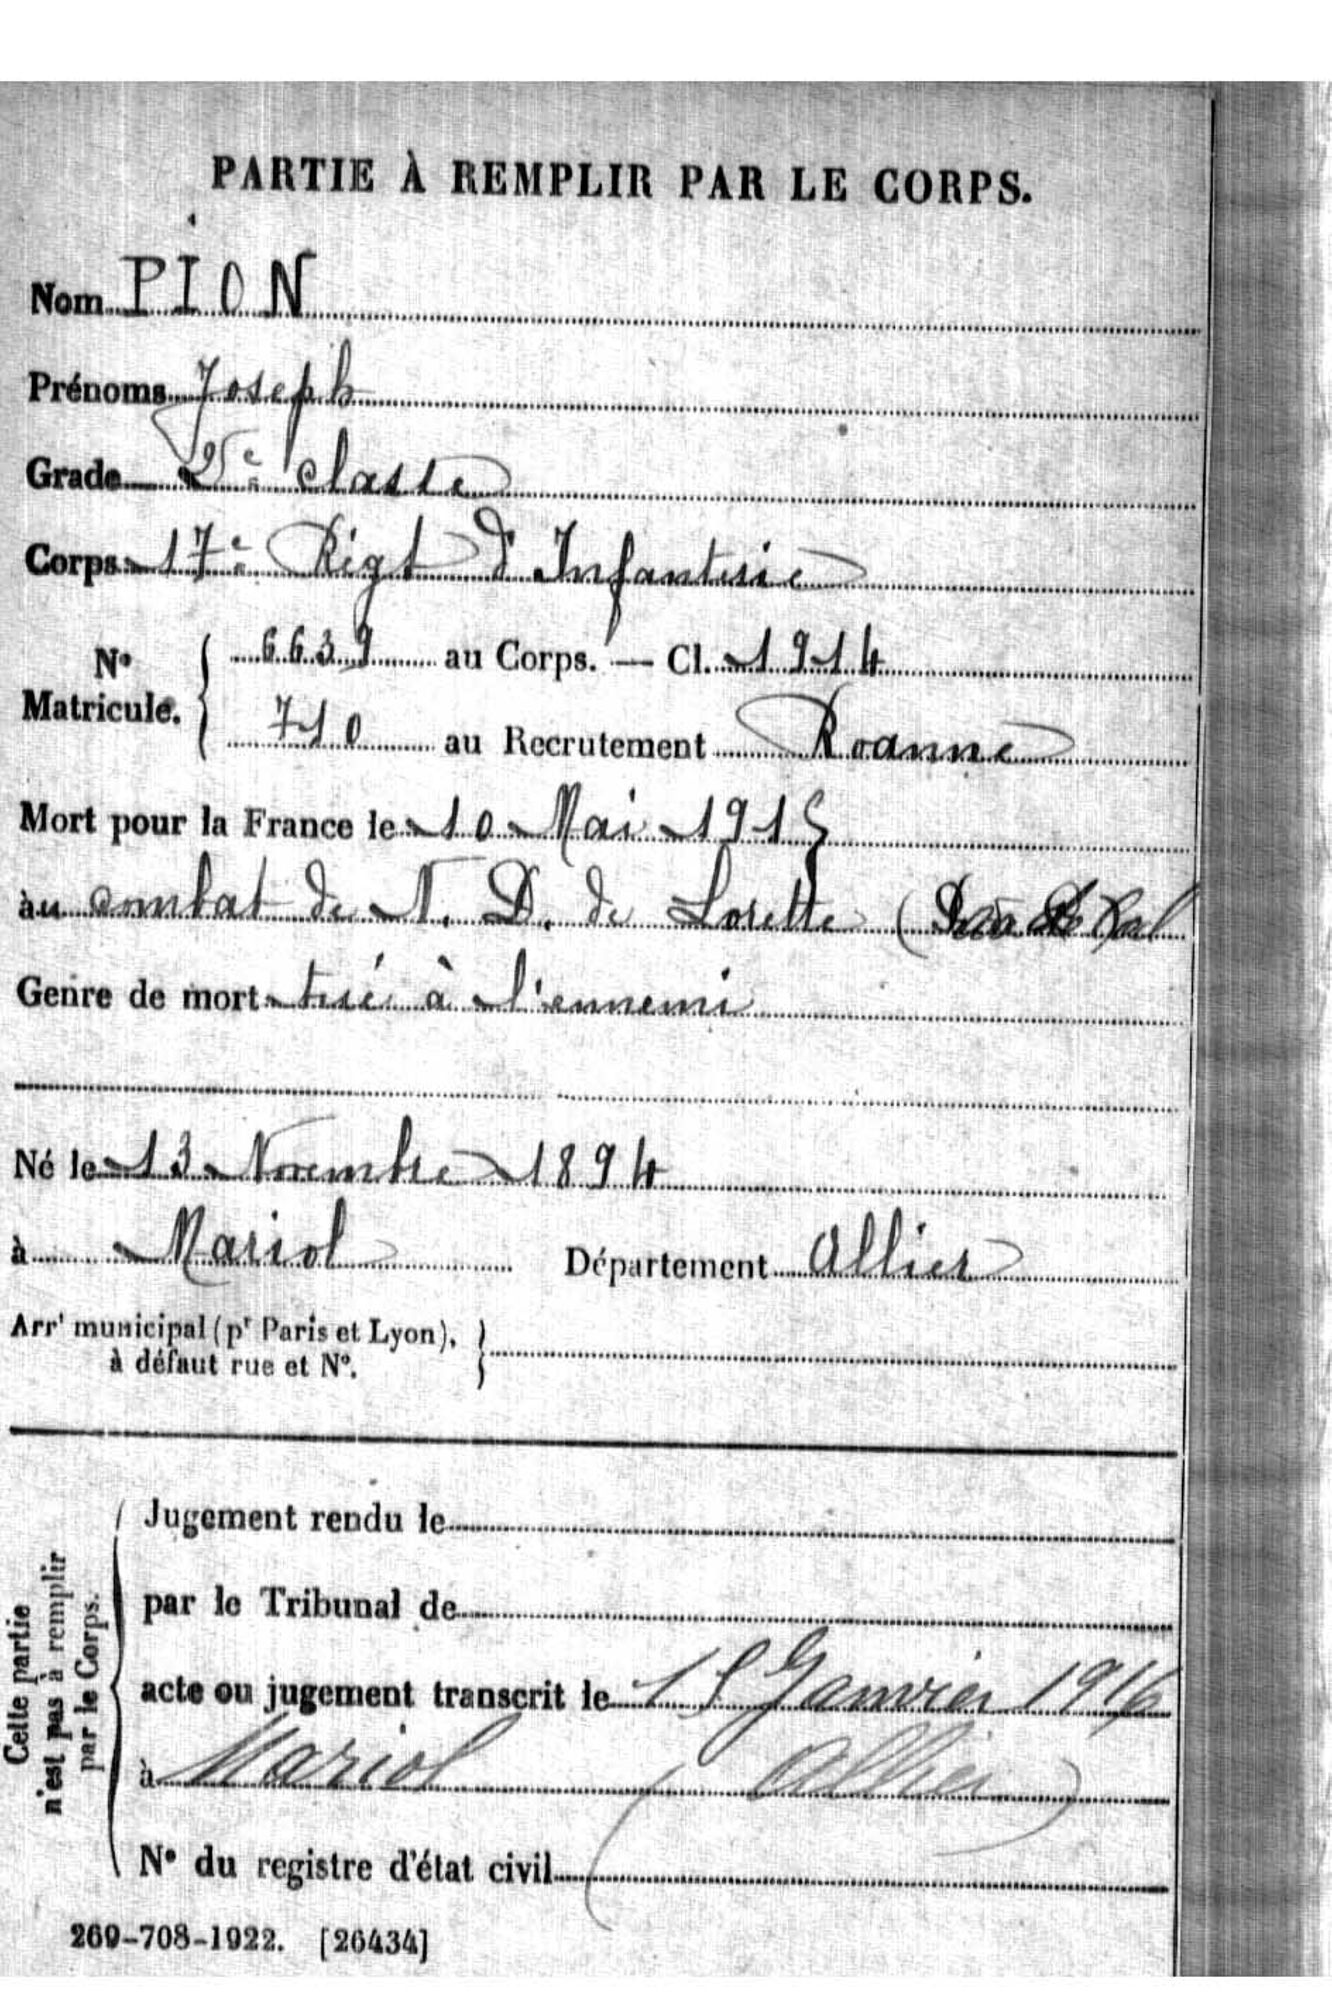 PARTIE À REMPLIR PAR LE CORPS.
Nom PION
Prénoms Joseph
Grade 2e classe
Corps 17e Régt d'Infanterie
No Matricule. { 6639 au Corps. — Cl. 1914
710 au Recrutement Roanne
Mort pour la France le 10 Mai 1915
au combat de N. D. de Lorette (
Genre de mort tué à l'ennemi
Né le 13 Novembre 1894
à Mariol Département Allier
Arrt municipal (pr Paris et Lyon), }
à défaut rue et No.
Cette partie
n'est pas à remplir
par le Corps.
Jugement rendu le
par le Tribunal de
acte ou jugement transcrit le 15 Janvier 1916
à Mariol (Allier)
No du registre d'état civil
269-708-1922. [26434]